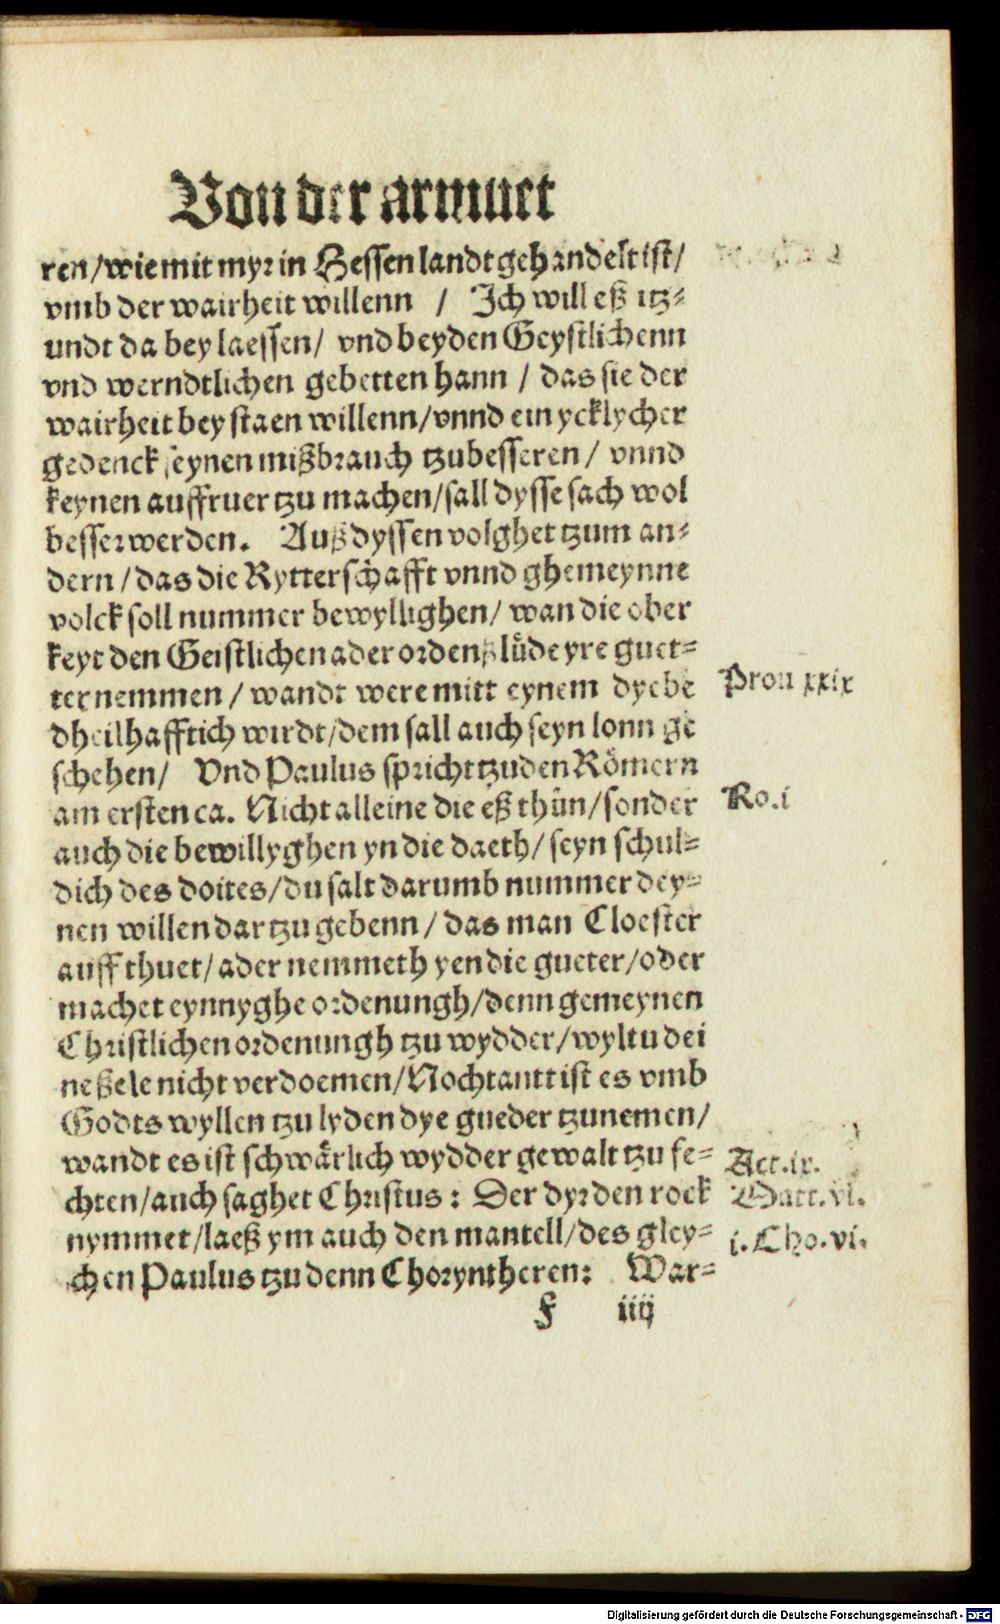 Von der armuet
ren/wie mit myr in Hessen landt gehandelt ist/
vmb der wairheit willenn / Ich will eß itz⸗
undt da bey laessen/ vnd beyden Geystlichenn
vnd werndtlichen gebetten hann / das sie der
wairheit bey staen willenn/vnnd ein ycklycher
gedenck seynen mißbrauch tzubesseren/ vnnd
keynen auffruer tzu machen/sall dysse sach wol
besser werden. Auß dyssen volghet tzum an⸗
dern/das die Rytterschafft vnnd ghemeynne
volck soll nummer bewyllighen/ wan die ober
keyt den Geistlichen ader ordenß lůde yre guet⸗
ter nemmen / wandt were mitt eynem dyebe
dheilhafftich wirdt/dem sall auch seyn lonn ge
schehen/ Vnd Paulus spricht tzu den Römern
am ersten ca. Nicht alleine die eß thůn/sonder
auch die bewillyghen yn die daeth/seyn schul⸗
dich des doites/du salt darumb nummer dey⸗
nen willen dar tzu gebenn/das man Cloester
auff thuet/ader nemmeth yen die gueter/oder
machet eynnyghe ordenungh/denn gemeynen
Christlichen ordenungh tzu wydder/wyltu dei
ne ßele nicht verdoemen/Nochtantt ist es vmb
Godts wyllen tzu lyden dye gueder tzunemen/
wandt es ist schwärlich wydder gewalt tzu fe⸗
chten/auch saghet Christus: Der dyr den rock
nymmet/laeß ym auch den mantell/des gley⸗
chen Paulus tzu denn Choryntheren: War⸗
F iiij
Prou xxix
Ro.i
Act.ix.
Matt.vi.
i.Cho.vi.
Digitalisierung gefördert durch die Deutsche Forschungsgemeinschaft - DFG